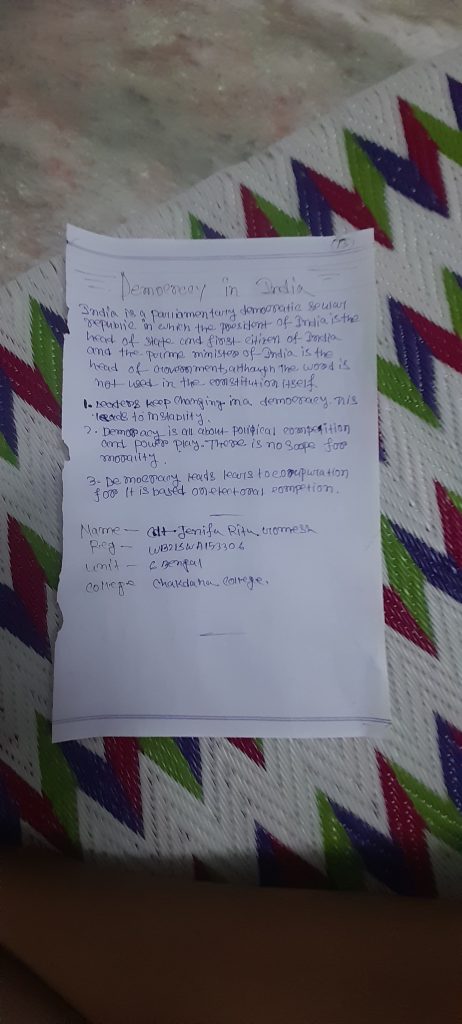 Democracy in India
India is a parliamentary democratic secular
republic in which the president of India is the
head of state and first citizen of India
and the purme minister of India is the
head of Government, although the word is
not used in the constitution itself.
1. Leaders keep changing in a democracy. This
leads to instability.
2. Democracy is all about political competition
and power play. There is no scope for
morality.
3. Democracy leads to
for it is based on electoral competion.
Name - Jenifa Ritu
Reg - WB21SWA153306
Unit - 6 Bengal
College Chakdaha College.